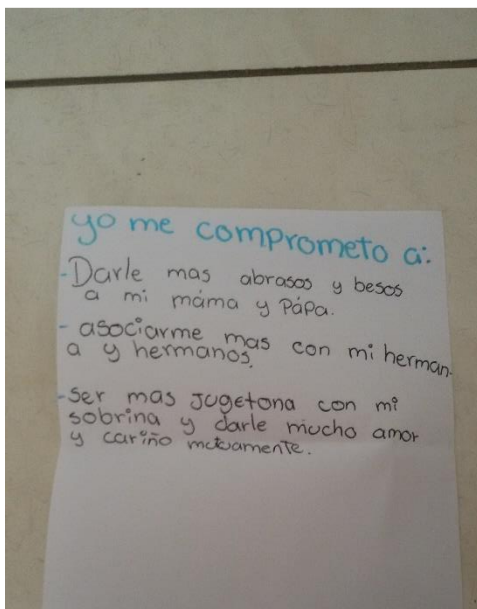 yo me comprometo a:
- Darle mas abrasos y besos
a mi máma y Pápa.
- asociarme mas con mi herman-
a y hermanos.
- ser mas Jugetona con mi
sobrina y darle mucho amor
y cariño mutuamente.